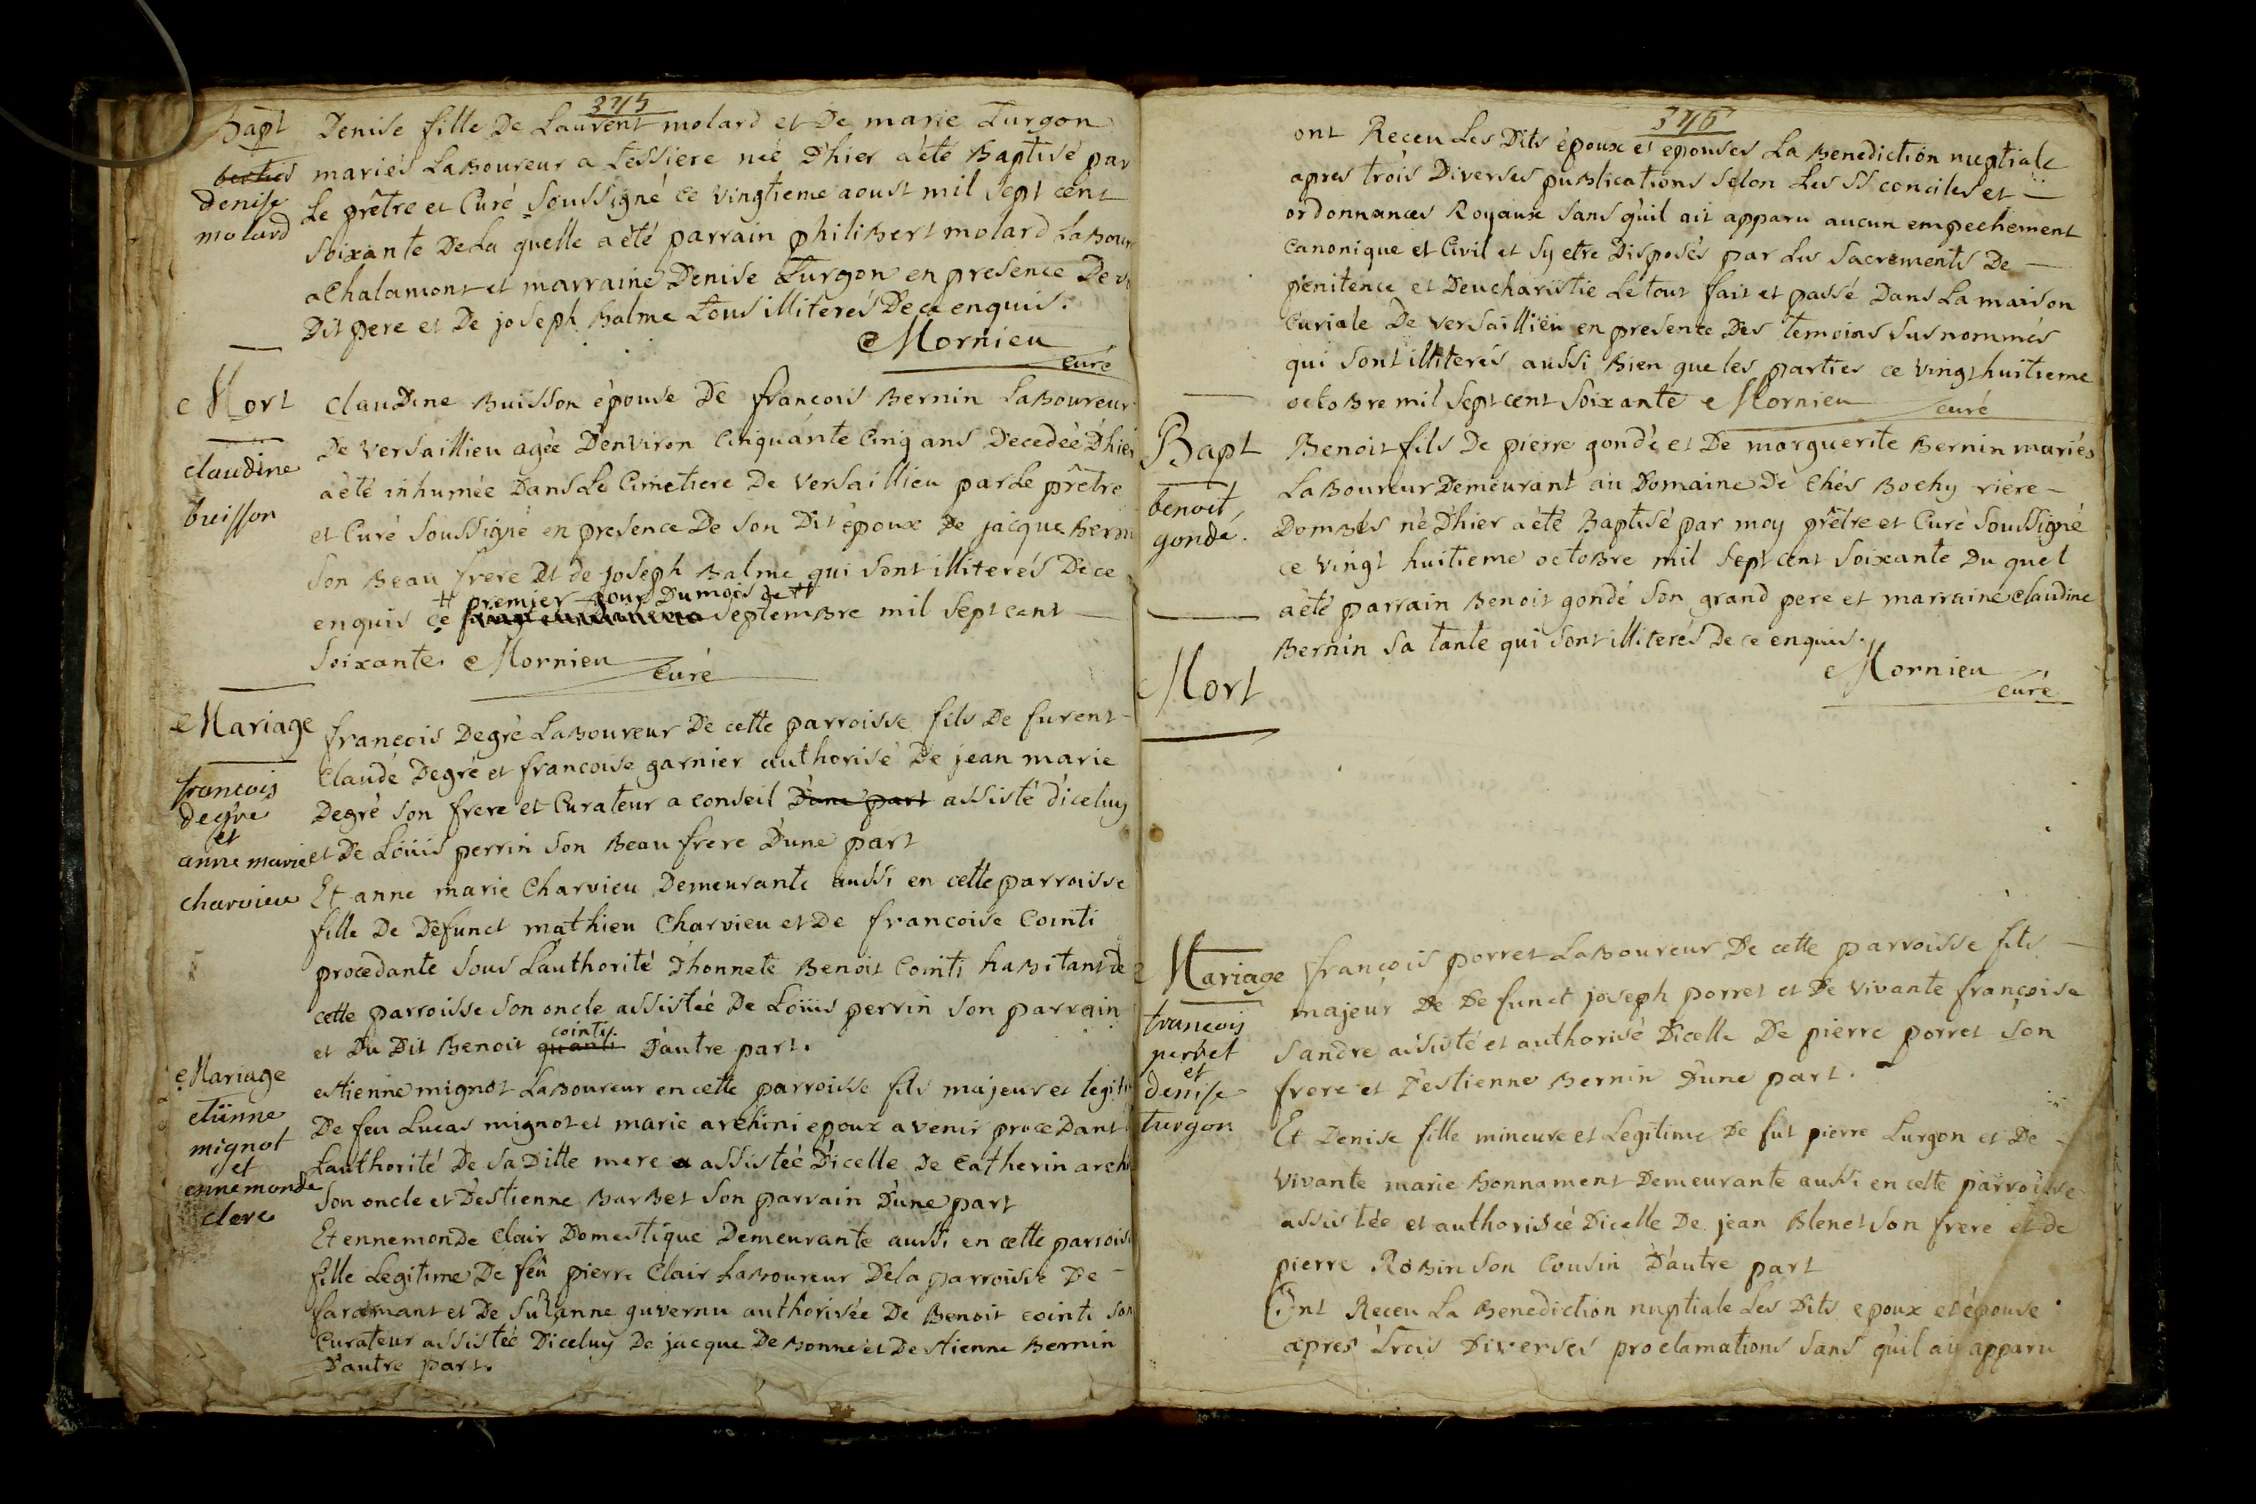 375
Bapt
denise
molard
Denise fille De Laurent molard et De marie Turgon
mariés LaBoureur a Tessiere née D'hier a été Baptisé par
Le prêtre et Curé Soussigné ce vingtieme aoust mil sept cent
Soixante De La quelle a été parrain philiBert molard LaBour
a Chalamont et marraine Denise Turgon en presence De
Dit pere et De joseph Balme Tous illiterés De ce enquis.
Mornieu
curé
Mort
claudine
buisson
Claudine Buisson épouse De francois Bernin LaBoureur
De Versaillieu agée D'environ Cinquante Cinq ans Decedée D'hier
a été inhumée Dans Le Cimetiere De Versaillieu par Le prêtre
et Curé Soussigné en presence De son Dit époux De jacque Bernin
Son Beau frere Et de joseph Balme qui sont illiterés De ce
premier jour Du mois de
enquis ce septemBre mil sept cent
Soixante. Mornieu
curé
Mariage
francois
degre
et
anne marie
charvieu
francois Degré LaBoureur De cette parroisse fils De furent
Claude Degré et francoise garnier authorisé De jean marie
Degré son frere et Curateur a conseil D'une part assisté d'iceluy
et De Loüis perrin son Beau frere D'une part
Et anne marie Charvieu Demeurante aussi en cette parroisse
fille De Defunct mathieu Charvieu et De francoise Cointi
procedante sous L'authorité D'honnete Benoit Cointi haBitant de
cette parroisse son oncle assistée De Loüis perrin son parrain
cointi
et Du Dit Benoit D'autre part.
Mariage
etienne
mignot
et
ennemonde
clere
estienne mignot LaBoureur en cette parroisse fils majeur et legit
De feu Lucas mignot et marie archini epoux avenir proceDant
L'authorité De sa Ditte mere assistée D'icelle De Catherin archi
Son oncle et D'estienne BarBet son parrain D'une part
Et ennemonde Clair Domestique Demeurante aussi en cette parrois
fille Legitime De feû pierre Clair LaBoureur De la parroisse De
faramant et De Suzanne guvernu authorisée De Benoit cointi son
Curateur assistée D'iceluy De jacque De Bonne et D'estienne Bernin
D'autre part.
376
ont Receu Les Dits époux et epouses La Benediction nuptiale
apres trois Diverses puBlications selon Les SS conciles et
ordonnances Royaux sans qu'il ait apparu aucun empechement
Canonique et Civil et sy etre Disposés par Les Sacrements De
pénitence et D'eucharistie Le tout fait et passé Dans La maison
Curiale De Versaillieu en presence Des temoins susnommés
qui sont illiterés aussi Bien que les parties ce vingt huitieme
octoBre mil sept cent Soixante Mornieu curé
Bapt
benoit
gondé.
Benoit fils De pierre gondé et De marguerite Bernin mariés
LaBoureur Demeurant au Domaine De Chés Bochy riére
DomBes né D'hier a été Baptisé par moy prêtre et Curé Soussigné
ce vingt huitieme octoBre mil sept Cent Soixante Du quel
a été parrain Benoit gondé Son grand pere et marraine Claudine
Bernin Sa tante qui sont illiterés De ce enquis.
Mornieu
curé
Mort
Mariage
francois
perret
et
denise
turgon
françois porret LaBoureur De cette parroisse fils
majeur De Defunct joseph porret et De Vivante françoise
Sandre assisté et authorisé D'icelle De pierre porret Son
frere et D'estienne Bernin D'une part.
Et Denise fille mineure et Legitime De fut pierre Turgon et De
Vivante marie Bonnament Demeurante aussi en cette parroisse
assistée et authorisée D'icelle De jean Blenet son frere et de
pierre RoBin son Cousin D'autre part
Ont Receu La Benediction nuptiale Les Dits epoux et épouse
apres Trois Diverses proclamations sans qu'il ay apparu